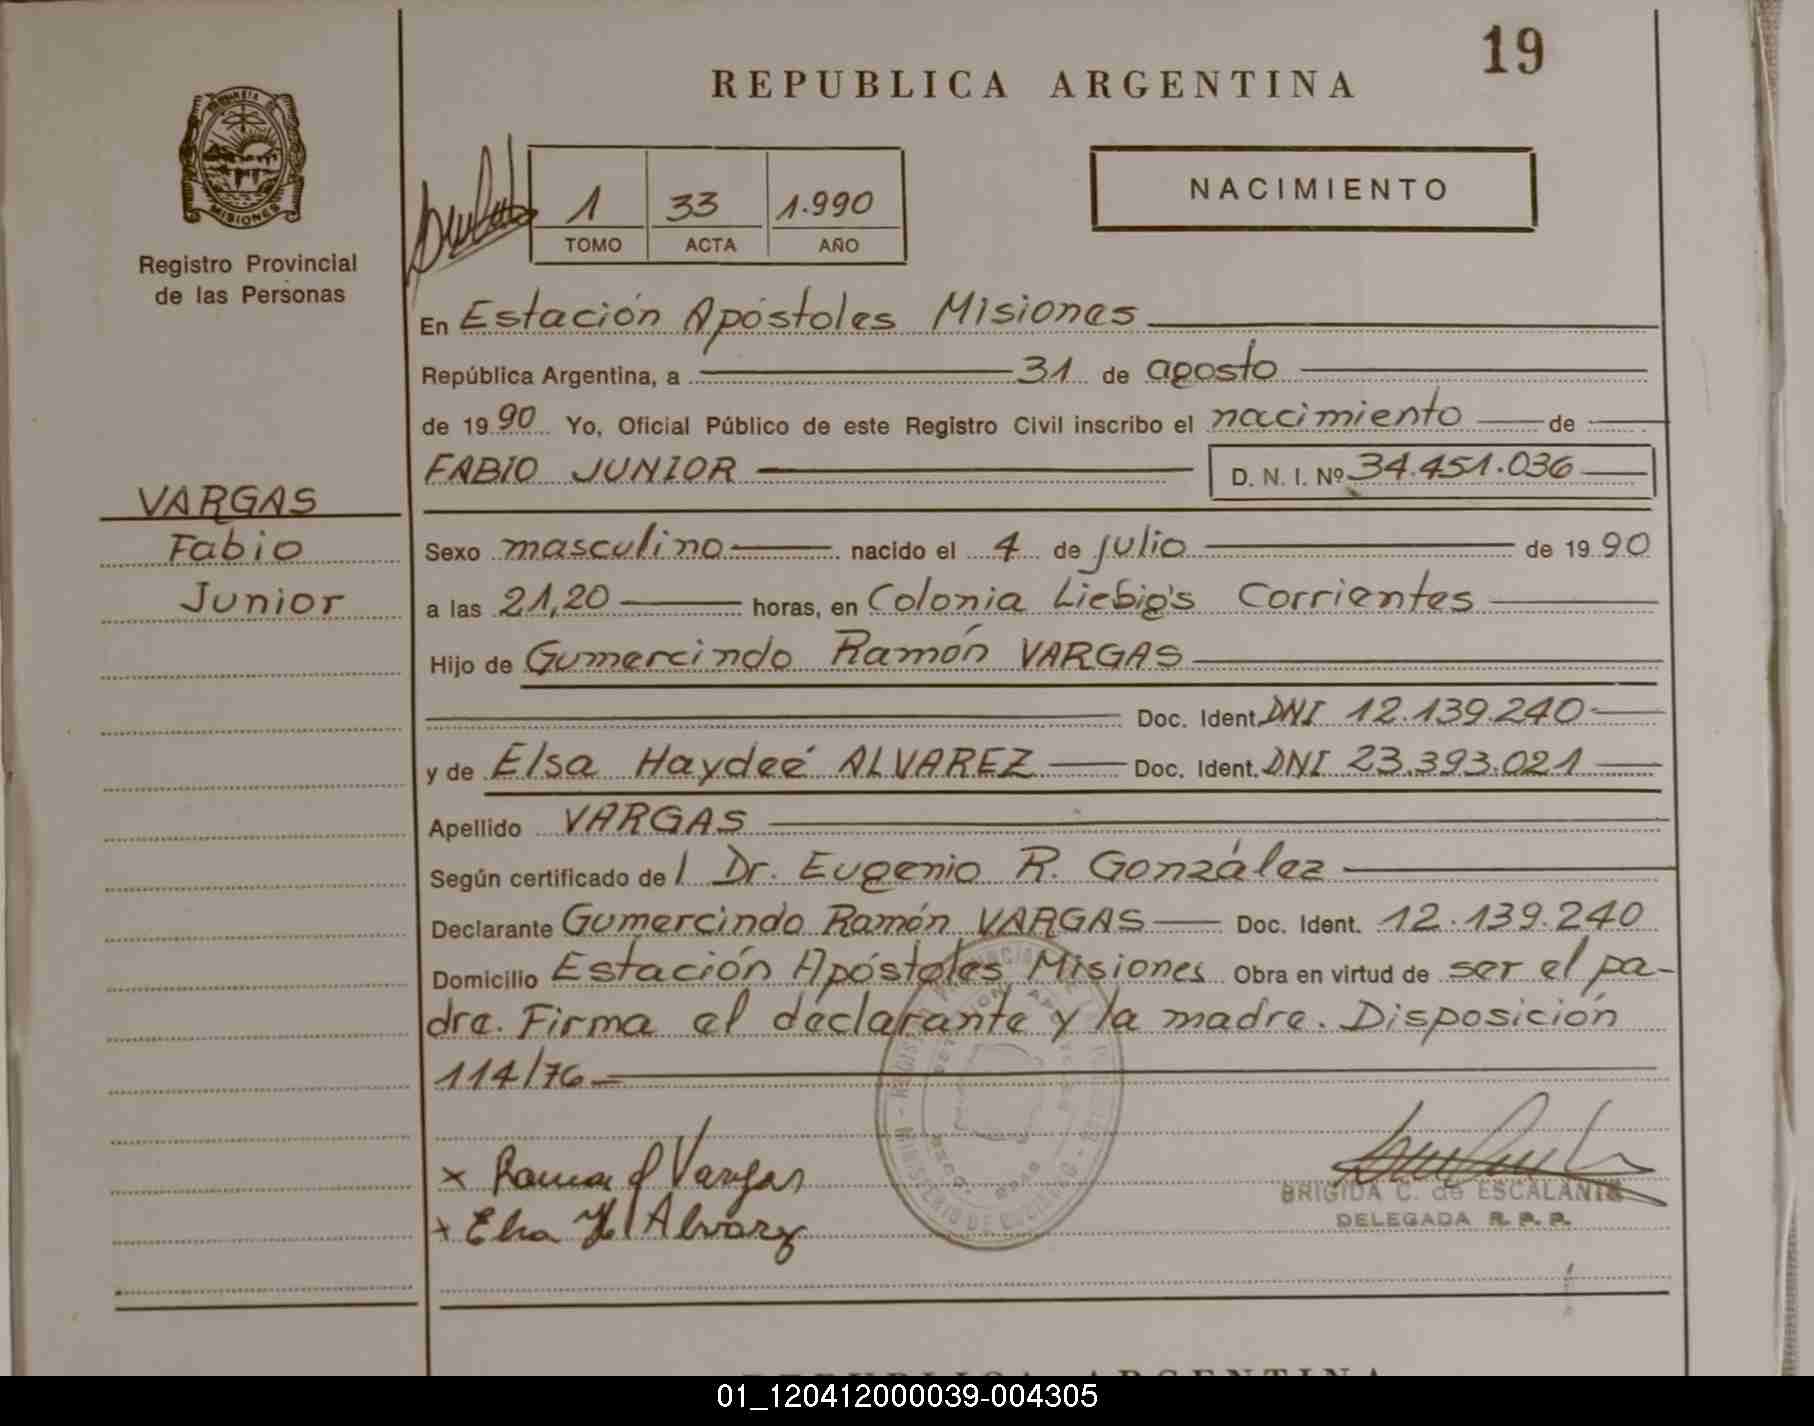 19
REPUBLICA ARGENTINA
NACIMIENTO
1 33 1.990
TOMO ACTA AÑO
MISIONES
Registro Provincial
de las Personas
En Estación Apóstoles Misiones
República Argentina, a 31 de agosto
de 1990 Yo, Oficial Público de este Registro Civil inscribo el nacimiento de
FABIO JUNIOR D. N. I. Nº 34.451.036
VARGAS
Fabio
Junior
Sexo masculino nacido el 4 de julio de 1990
a las 21,20 horas, en Colonia Liebig's Corrientes
Hijo de Gumercindo Ramón VARGAS
Doc. Ident. DNI 12.139.240
y de Elsa Haydeé ALVAREZ Doc. Ident. DNI 23.393.021
Apellido VARGAS
Según certificado de l Dr. Eugenio R. González
Declarante Gumercindo Ramón VARGAS Doc. Ident. 12.139.240
Domicilio Estación Apóstoles Misiones Obra en virtud de ser el pa-
dre. Firma el declarante y la madre. Disposición
114/76
x Ramon Vargas
x Elsa H Alvarez
BRIGIDA C. de ESCALANTE
DELEGADA R. P. P.
REPUBLICA ARGENTINA
01_120412000039-004305